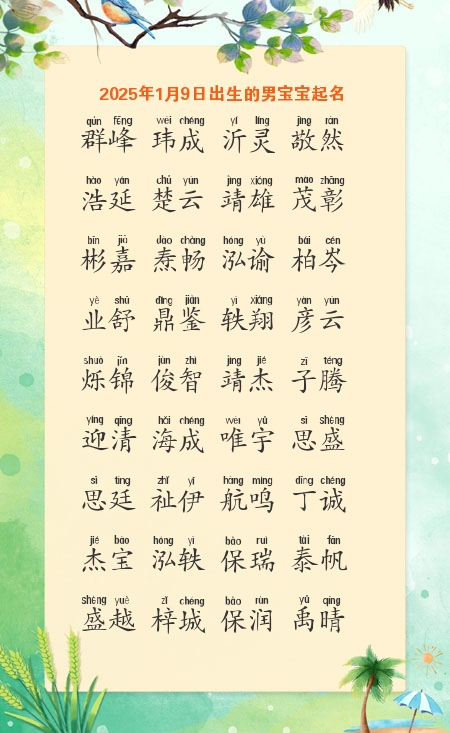 2025年1月9日出生的男宝宝起名
qún fēng wěi chéng yí líng jìng rán
群峰 玮成 沂灵 敬然
hào yán chǔ yún jìng xióng mào zhāng
浩延 楚云 靖雄 茂彰
bīn jiā dào chàng hóng yù bǎi cén
彬嘉 焘畅 泓谕 柏岑
yè shū dǐng jiàn yì xiáng yàn yún
业舒 鼎鉴 轶翔 彦云
shuò jǐn jùn zhì jìng jié zǐ téng
烁锦 俊智 靖杰 子腾
yíng qīng hǎi chéng wéi yǔ sī shèng
迎清 海成 唯宇 思盛
sī tíng zhǐ yī háng míng dīng chéng
思廷 祉伊 航鸣 丁诚
jié bǎo hóng yì bǎo ruì tài fān
杰宝 泓轶 保瑞 泰帆
shèng yuè zǐ chéng bǎo rùn yǔ qíng
盛越 梓城 保润 禹晴